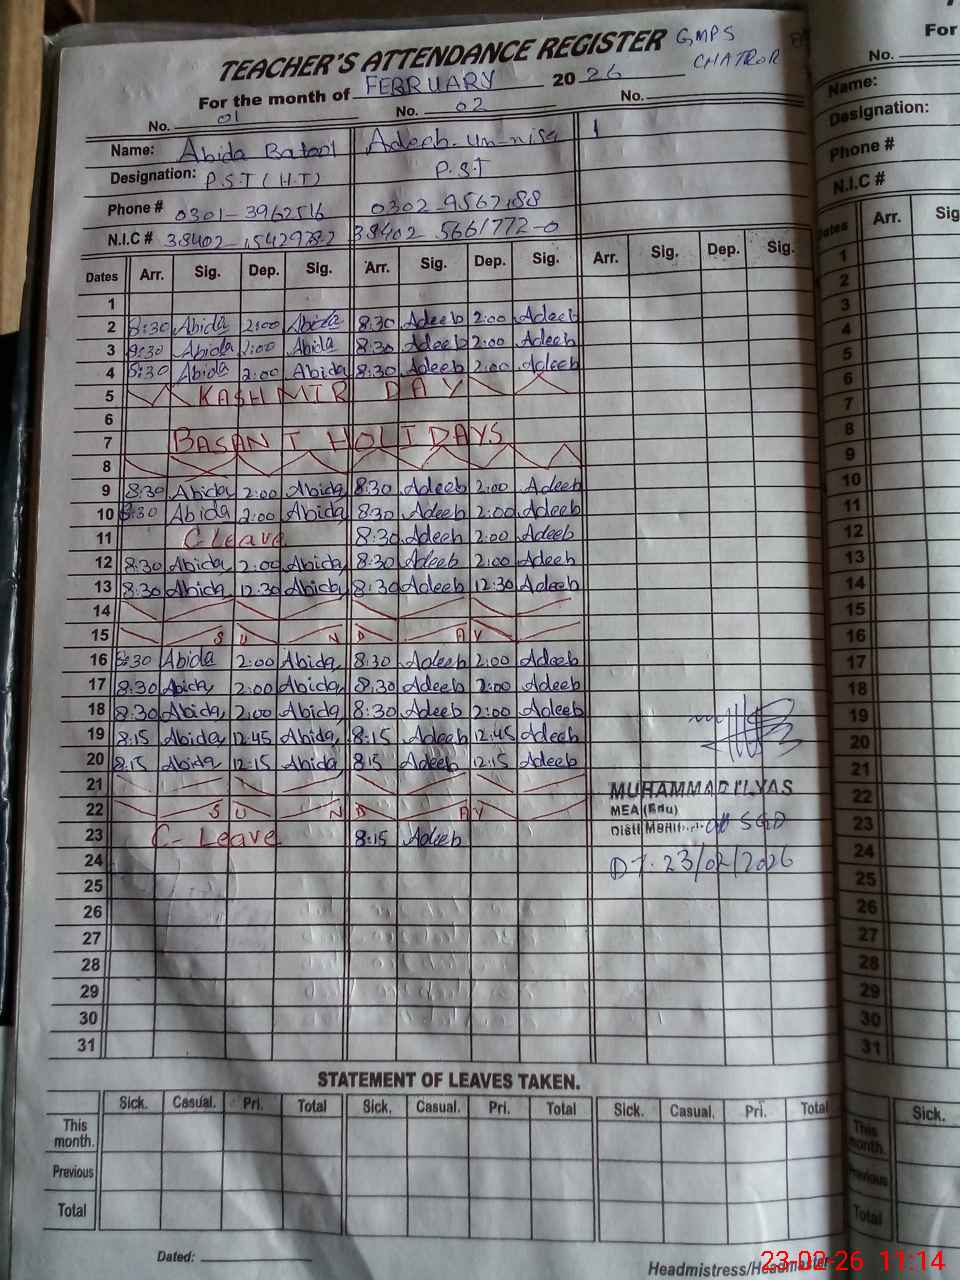 TEACHER'S ATTENDANCE REGISTER GMPS
CHATROR
For the month of FEBRUARY 2026
No. 01 No. 02 No.
Name: Abida Batool Adeeb-un-nisa
Designation: P.S.T (H.T) P.S.T
Phone # 0301-3962516 0302-9567188
N.I.C # 38402 38402-5661772-0
Dates Arr. Sig. Dep. Sig. Arr. Sig. Dep. Sig. Arr. Sig. Dep. Sig.
1
2 8:30 Abida 2:00 Abida 8:30 Adeeb 2:00 Adeeb
3 8:30 Abida 2:00 Abida 8:30 Adeeb 2:00 Adeeb
4 8:30 Abida 2:00 Abida 8:30 Adeeb 2:00 Adeeb
5 KASHMIR DAY
6
7 BASANT HOLIDAYS
8
9 8:30 Abida 2:00 Abida 8:30 Adeeb 2:00 Adeeb
10 8:30 Abida 2:00 Abida 8:30 Adeeb 2:00 Adeeb
11 C Leave 8:30 Adeeb 2:00 Adeeb
12 8:30 Abida 2:00 Abida 8:30 Adeeb 2:00 Adeeb
13 8:30 Abida 12:30 Abida 8:30 Adeeb 12:30 Adeeb
14
15 S U N D A Y
16 8:30 Abida 2:00 Abida 8:30 Adeeb 2:00 Adeeb
17 8:30 Abida 2:00 Abida 8:30 Adeeb 2:00 Adeeb
18 8:30 Abida 2:00 Abida 8:30 Adeeb 2:00 Adeeb
19 8:15 Abida 12:45 Abida 8:15 Adeeb 12:45 Adeeb
20 8:15 Abida 12:15 Abida 8:15 Adeeb 12:15 Adeeb
21
22 S U N D A Y
23 C- Leave 8:15 Adeeb
24
25
26
27
28
29
30
31
MUHAMMAD ILYAS
MEA (Edu)
SGD
DT: 23/02/2026
STATEMENT OF LEAVES TAKEN.
Sick. Casual. Pri. Total Sick. Casual. Pri. Total Sick. Casual. Pri. Total
This month.
Previous
Total
Dated:
Headmistress/Headmaster
For
No.
Name:
Designation:
Phone #
N.I.C #
Dates Arr. Sig
1
2
3
4
5
6
7
8
9
10
11
12
13
14
15
16
17
18
19
20
21
22
23
24
25
26
27
28
29
30
31
Sick.
This month.
Previous
Total
23-02-26 11:14